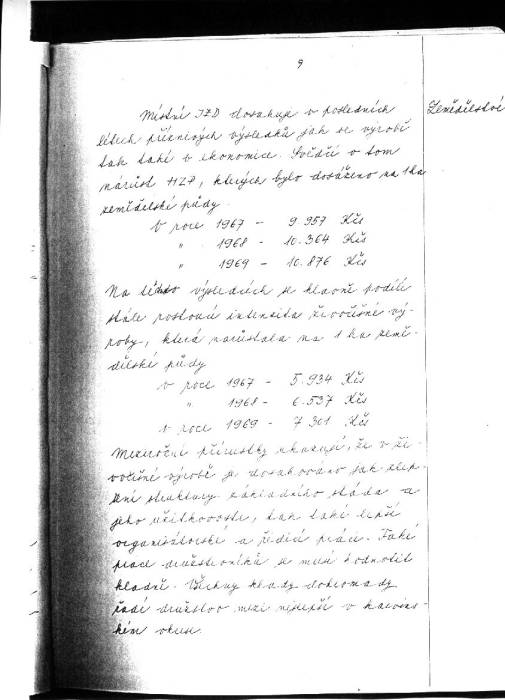 9
Místní JZD dosahuje v posledních
Zemědělství
létech příznivých výsledků jak ve výrobě
tak také v ekonomice. Svědčí o tom
nárůst HZP, kterých bylo dosaženo na 1 ha
zemědělské půdy.
V roce 1967 - 9 957 Kčs
" 1968 - 10.364 Kčs
" 1969 - 10.876 Kčs
Na těchto výsledcích se hlavně podílí
stále rostoucí intenzita živočišné vý-
roby, která narůstala na 1 ha země-
dělské půdy
v roce 1967 - 5.934 Kčs
" 1968 - 6.537 Kčs
v roce 1969 - 7 301 Kčs
Meziroční přírustky ukazují, že v ži-
vočišné výrobě je dosahováno jak zlep-
šení struktury základního stáda a
jeho užitkovosti, tak také lepší
organizátorské a řídící práci. Také
práce družstevníků se musí hodnotit
kladně. Všechny klady dohromady
řadí družstvo mezi nejlepší v karvin-
ském okrese.